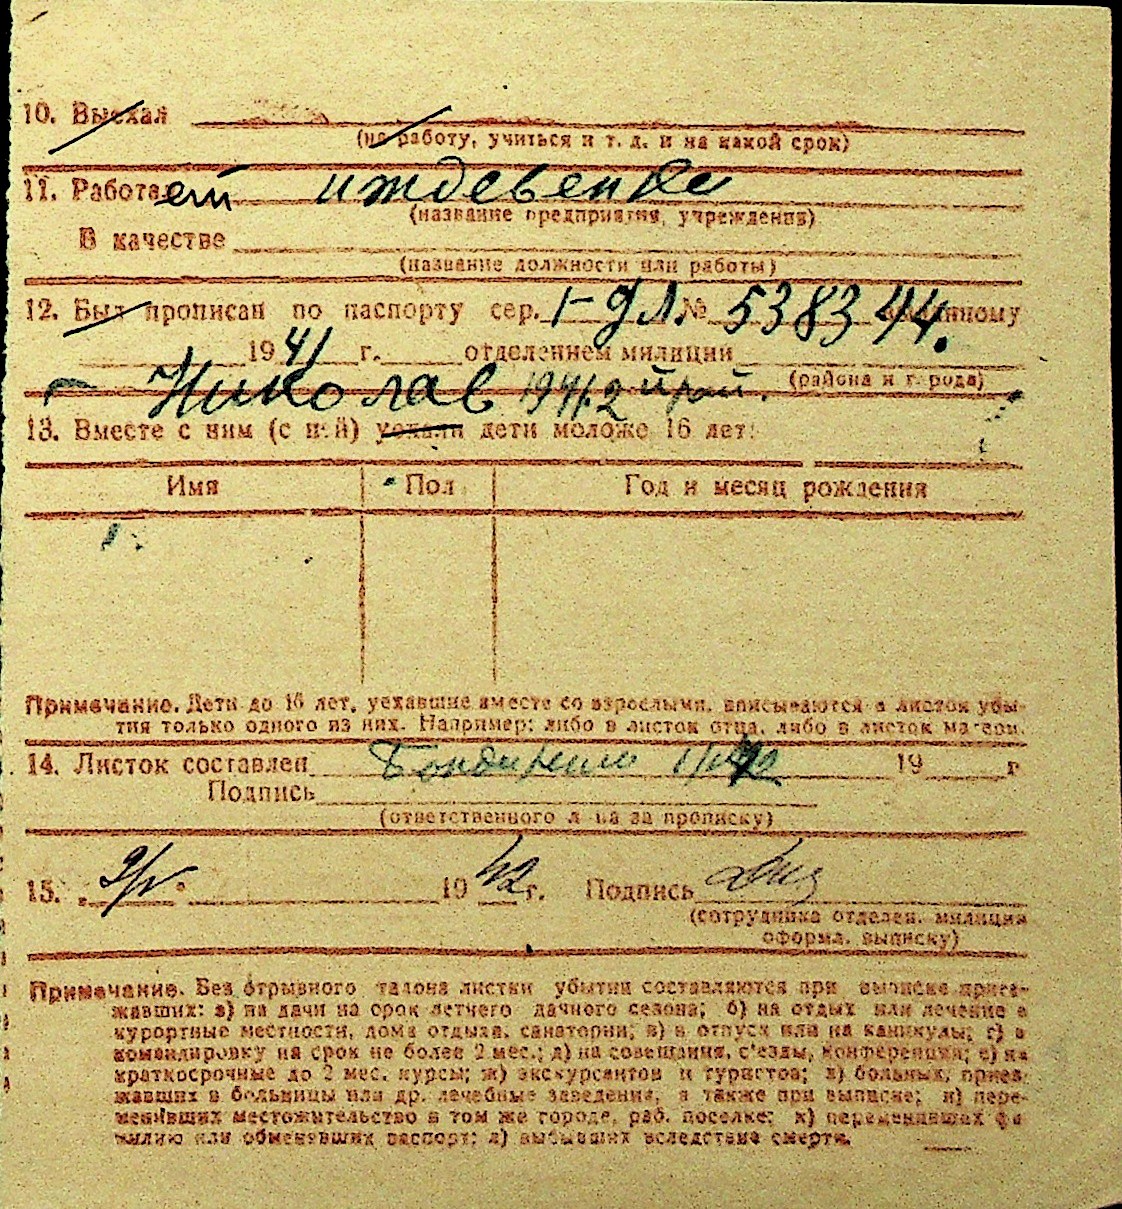 10. Выехал
(на работу, учиться и т. д. и на какой срок)
11. Работает иждевенка
(название предприятия, учреждения)
В качестве
(название должности или работы)
12. Был прописан по паспорту сер. № 538344 выданному
1941 г. отделением милиции
г Николаев 1941.2
(района и города)
13. Вместе с ним (с ней) уехали дети моложе 16 лет:
Имя Пол Год и месяц рождения
Примечание. Дети до 16 лет, уехавшие вместе со взрослыми, вписываются в листок убы-
тия только одного из них. Например: либо в листок отца, либо в листок матери.
14. Листок составлен 19 г
Подпись
(ответственного лица за прописку)
15. 1942 г. Подпись
(сотрудника отделен. милиции
оформ. выписку)
Примечание. Без отрывного талона листки убытия составляются при выписке приез-
жавших: а) на дачи на срок летнего дачного сезона; б) на отдых или лечение в
курортные местности, дома отдыха, санатории; в) в отпуск или на каникулы; г) в
командировку на срок не более 2 мес.; д) на совещания, с'езды, конференции; е) на
краткосрочные до 2 мес. курсы; ж) экскурсантов и туристов; з) больных, приез-
жавших в больницы или др. лечебные заведения, а также при выписке; и) пере-
менивших местожительство в том же городе, раб. поселке; к) переменивших фа
милию или обменявших паспорт; л) выбывших вследствие смерти.